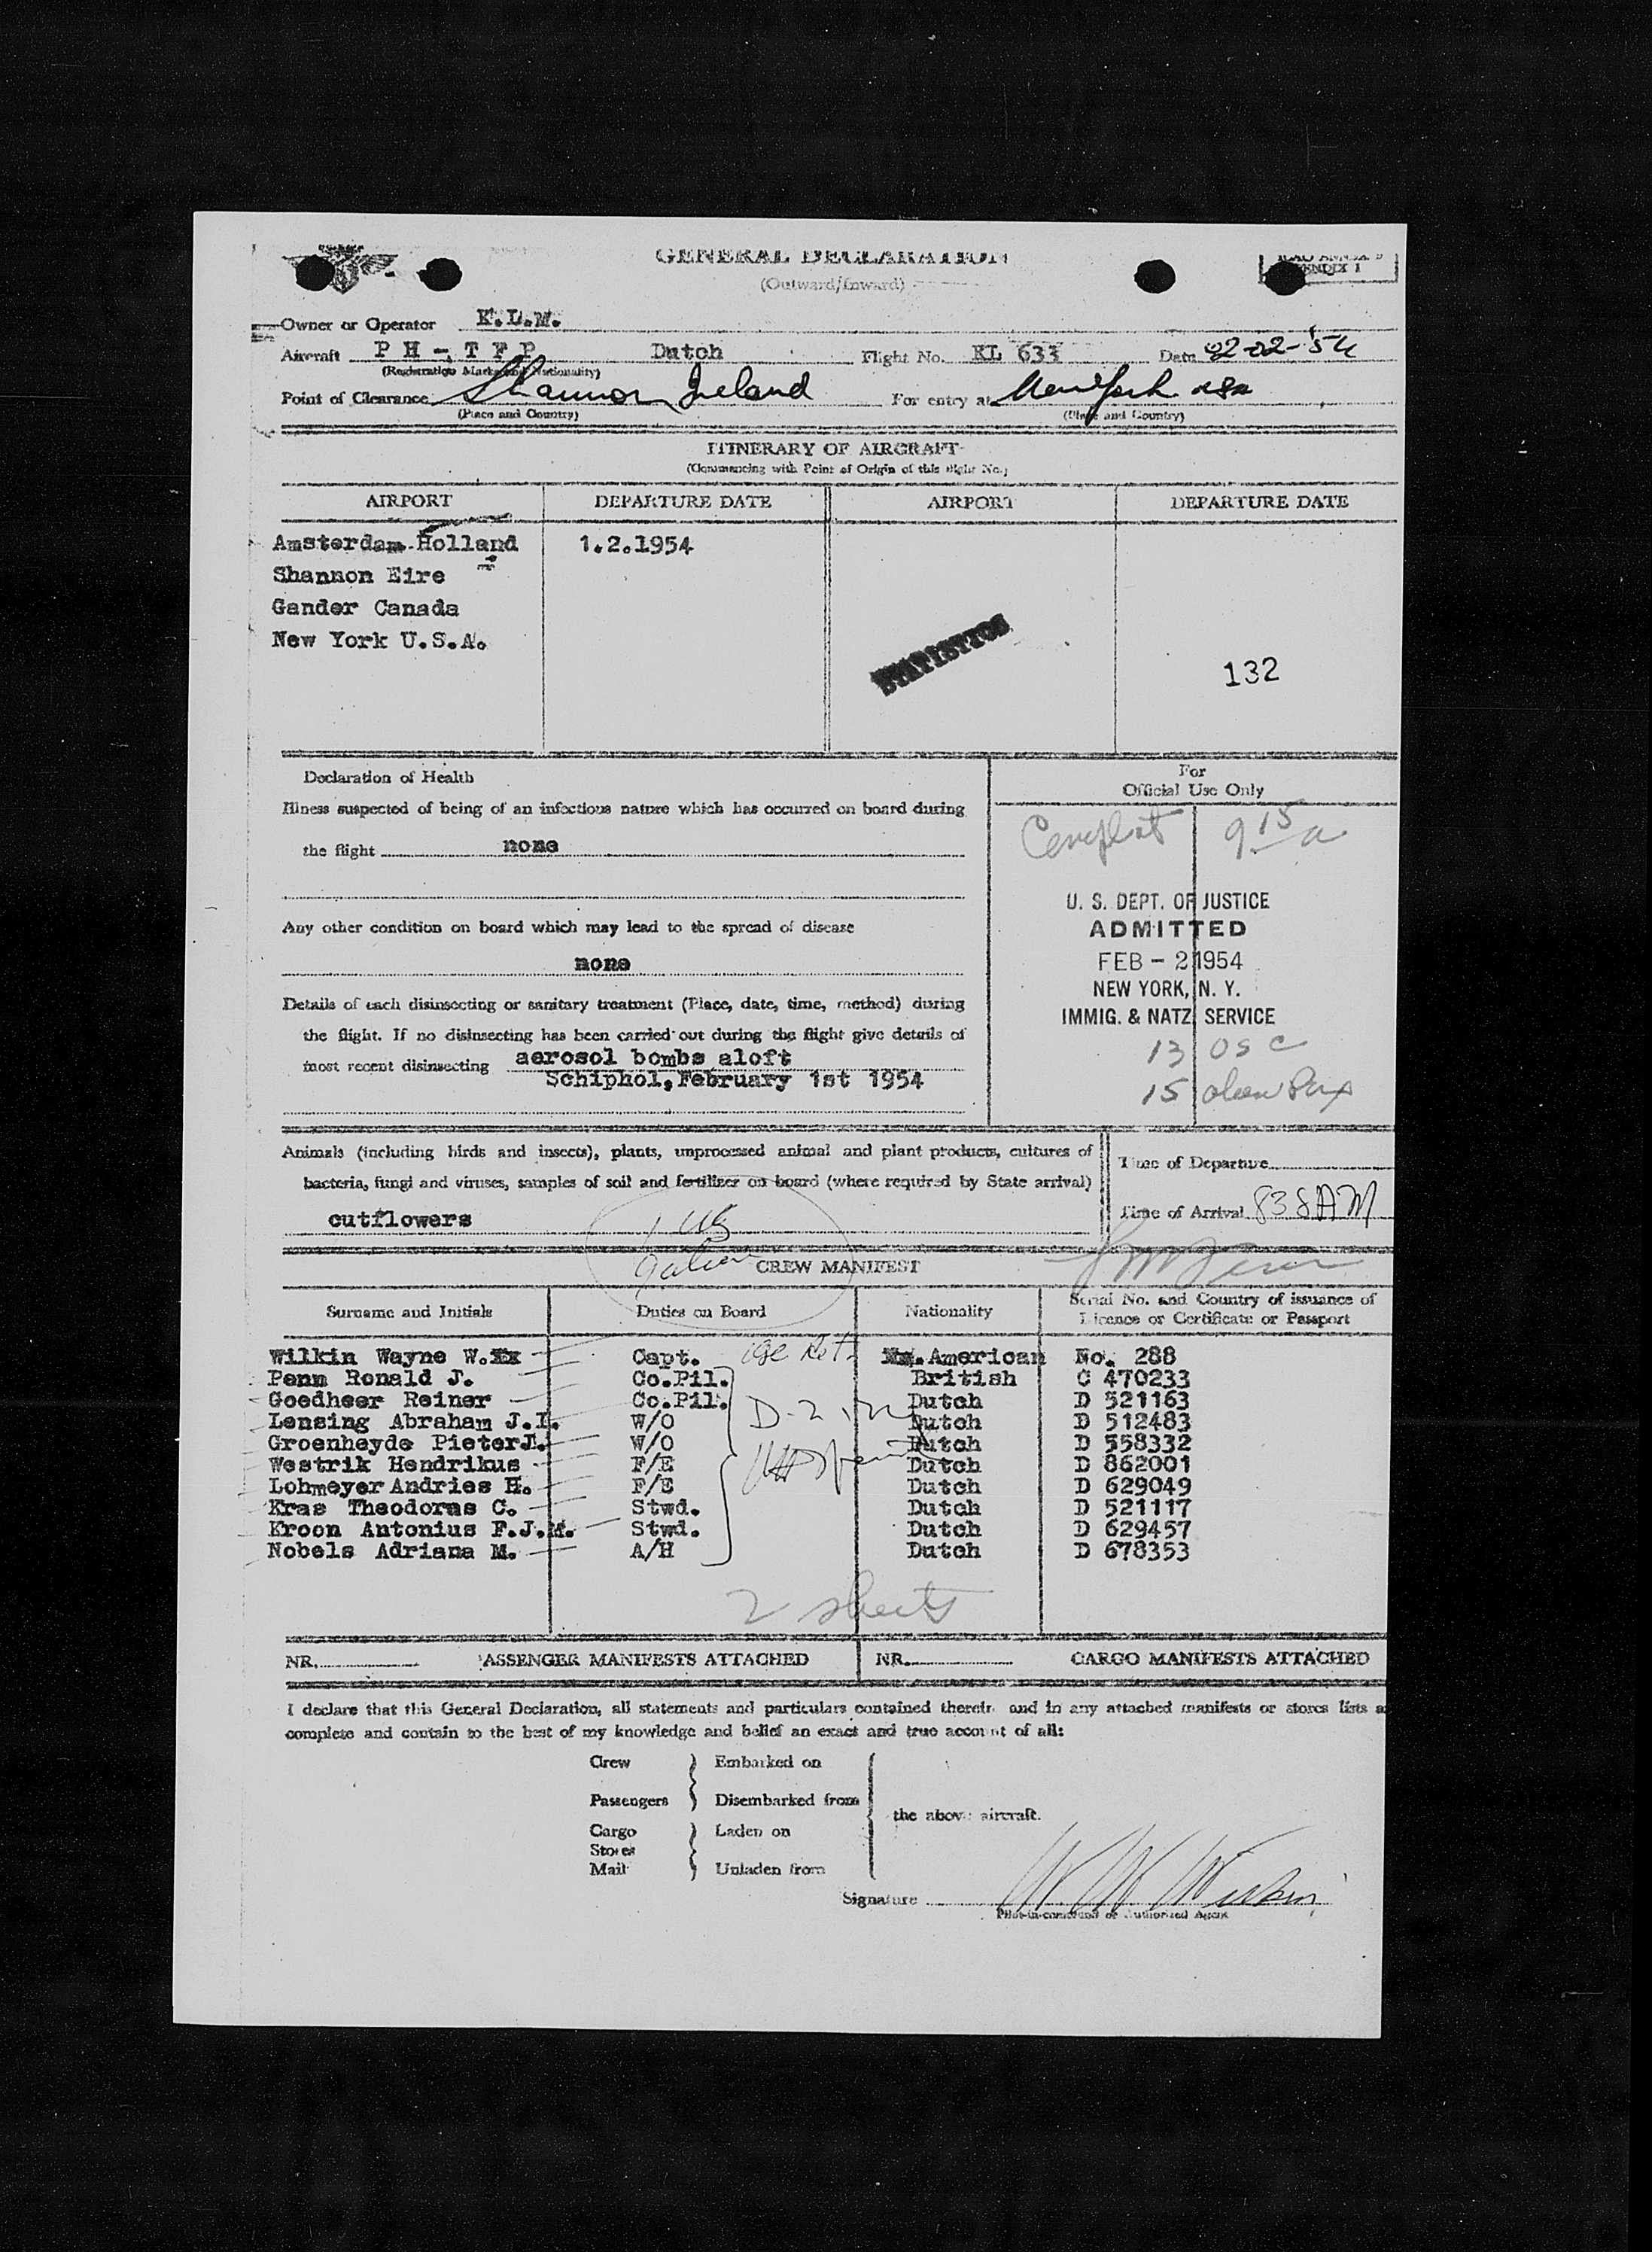 GENERAL DECLARATION
(Outward/Inward)
ICAO ANNEX 9
APPENDIX 1
Owner or Operator K.L.M.
Aircraft PH-TFP Dutch Flight No. KL 633 Date 02-02-'54
(Registration Marks and Nationality)
Point of Clearance Shannon Ireland For entry at New York USA
(Place and Country) (Place and Country)
ITINERARY OF AIRCRAFT
(Commencing with Point of Origin of this flight No.)
AIRPORT DEPARTURE DATE AIRPORT DEPARTURE DATE
Amsterdam Holland 1.2.1954
Shannon Eire
Gander Canada
New York U.S.A.
STATISTICS
132
Declaration of Health
Illness suspected of being of an infectious nature which has occurred on board during
the flight none
Any other condition on board which may lead to the spread of disease
none
Details of each disinsecting or sanitary treatment (Place, date, time, method) during
the flight. If no disinsecting has been carried out during the flight give details of
most recent disinsecting aerosol bombs aloft
Schiphol, February 1st 1954
For
Official Use Only
9 15 a
U. S. DEPT. OF JUSTICE
ADMITTED
FEB - 2 1954
NEW YORK, N. Y.
IMMIG. & NATZ. SERVICE
13 OSC
15 alien Pax
Animals (including birds and insects), plants, unprocessed animal and plant products, cultures of
bacteria, fungi and viruses, samples of soil and fertilizer on board (where required by State arrival)
cutflowers
Time of Departure
Time of Arrival 838AM
CREW MANIFEST
Surname and Initials Duties on Board Nationality Serial No. and Country of issuance of
Licence or Certificate or Passport
Wilkin Wayne W. Capt. American No. 288
Penm Ronald J. Co.Pil. British C 470233
Goedheer Reiner Co.Pil. Dutch D 521163
Lensing Abraham J.I. W/O Dutch D 512483
Groenheyde Pieter J. W/O Dutch D 558332
Westrik Hendrikus F/E Dutch D 862001
Lohmeyer Andries H. F/E Dutch D 629049
Kras Theodorus C. Stwd. Dutch D 521117
Kroon Antonius F.J.M. Stwd. Dutch D 629457
Nobels Adriana M. A/H Dutch D 678353
2 sheets
NR. PASSENGER MANIFESTS ATTACHED NR. CARGO MANIFESTS ATTACHED
I declare that this General Declaration, all statements and particulars contained therein and in any attached manifests or stores lists a
complete and contain to the best of my knowledge and belief an exact and true account of all:
Crew Embarked on
Passengers Disembarked from
the above aircraft.
Cargo Laden on
Stores
Mail Unladen from
Signature W W Wilkin
Pilot-in-command or Authorized Agent